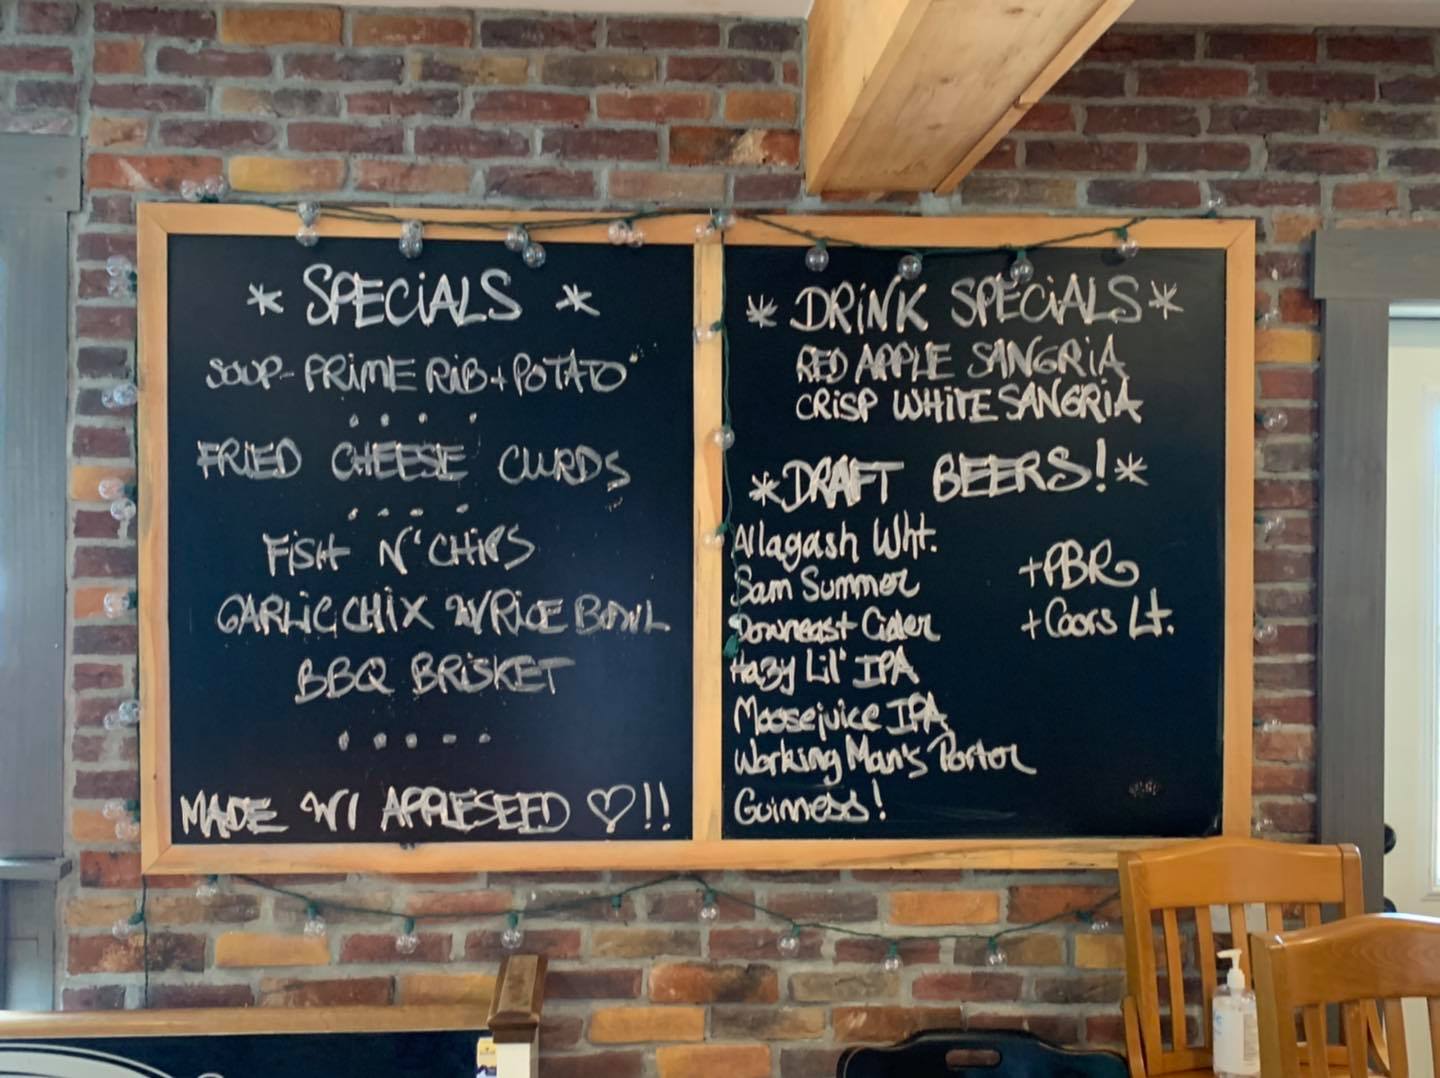 * SPECiALS *
SOUP - PRiME RiB + POTATO
FRiED CHEESE CURDS
FiSH N' CHiPS
GARLiC CHiX W/ RiCE BOWL
BBQ BRiSKET
MADE W/ APPLESEED ♡!!
* DRiNK SPECiALS *
RED APPLE SANGRiA
CRiSP WHiTE SANGRiA
* DRAFT BEERS! *
Allagash Wht.
Sam Summer
Downeast Cider
Hazy Lil' IPA
Moosejuice IPA
Working Man's Porter
Guinness!
+PBR
+Coors Lt.